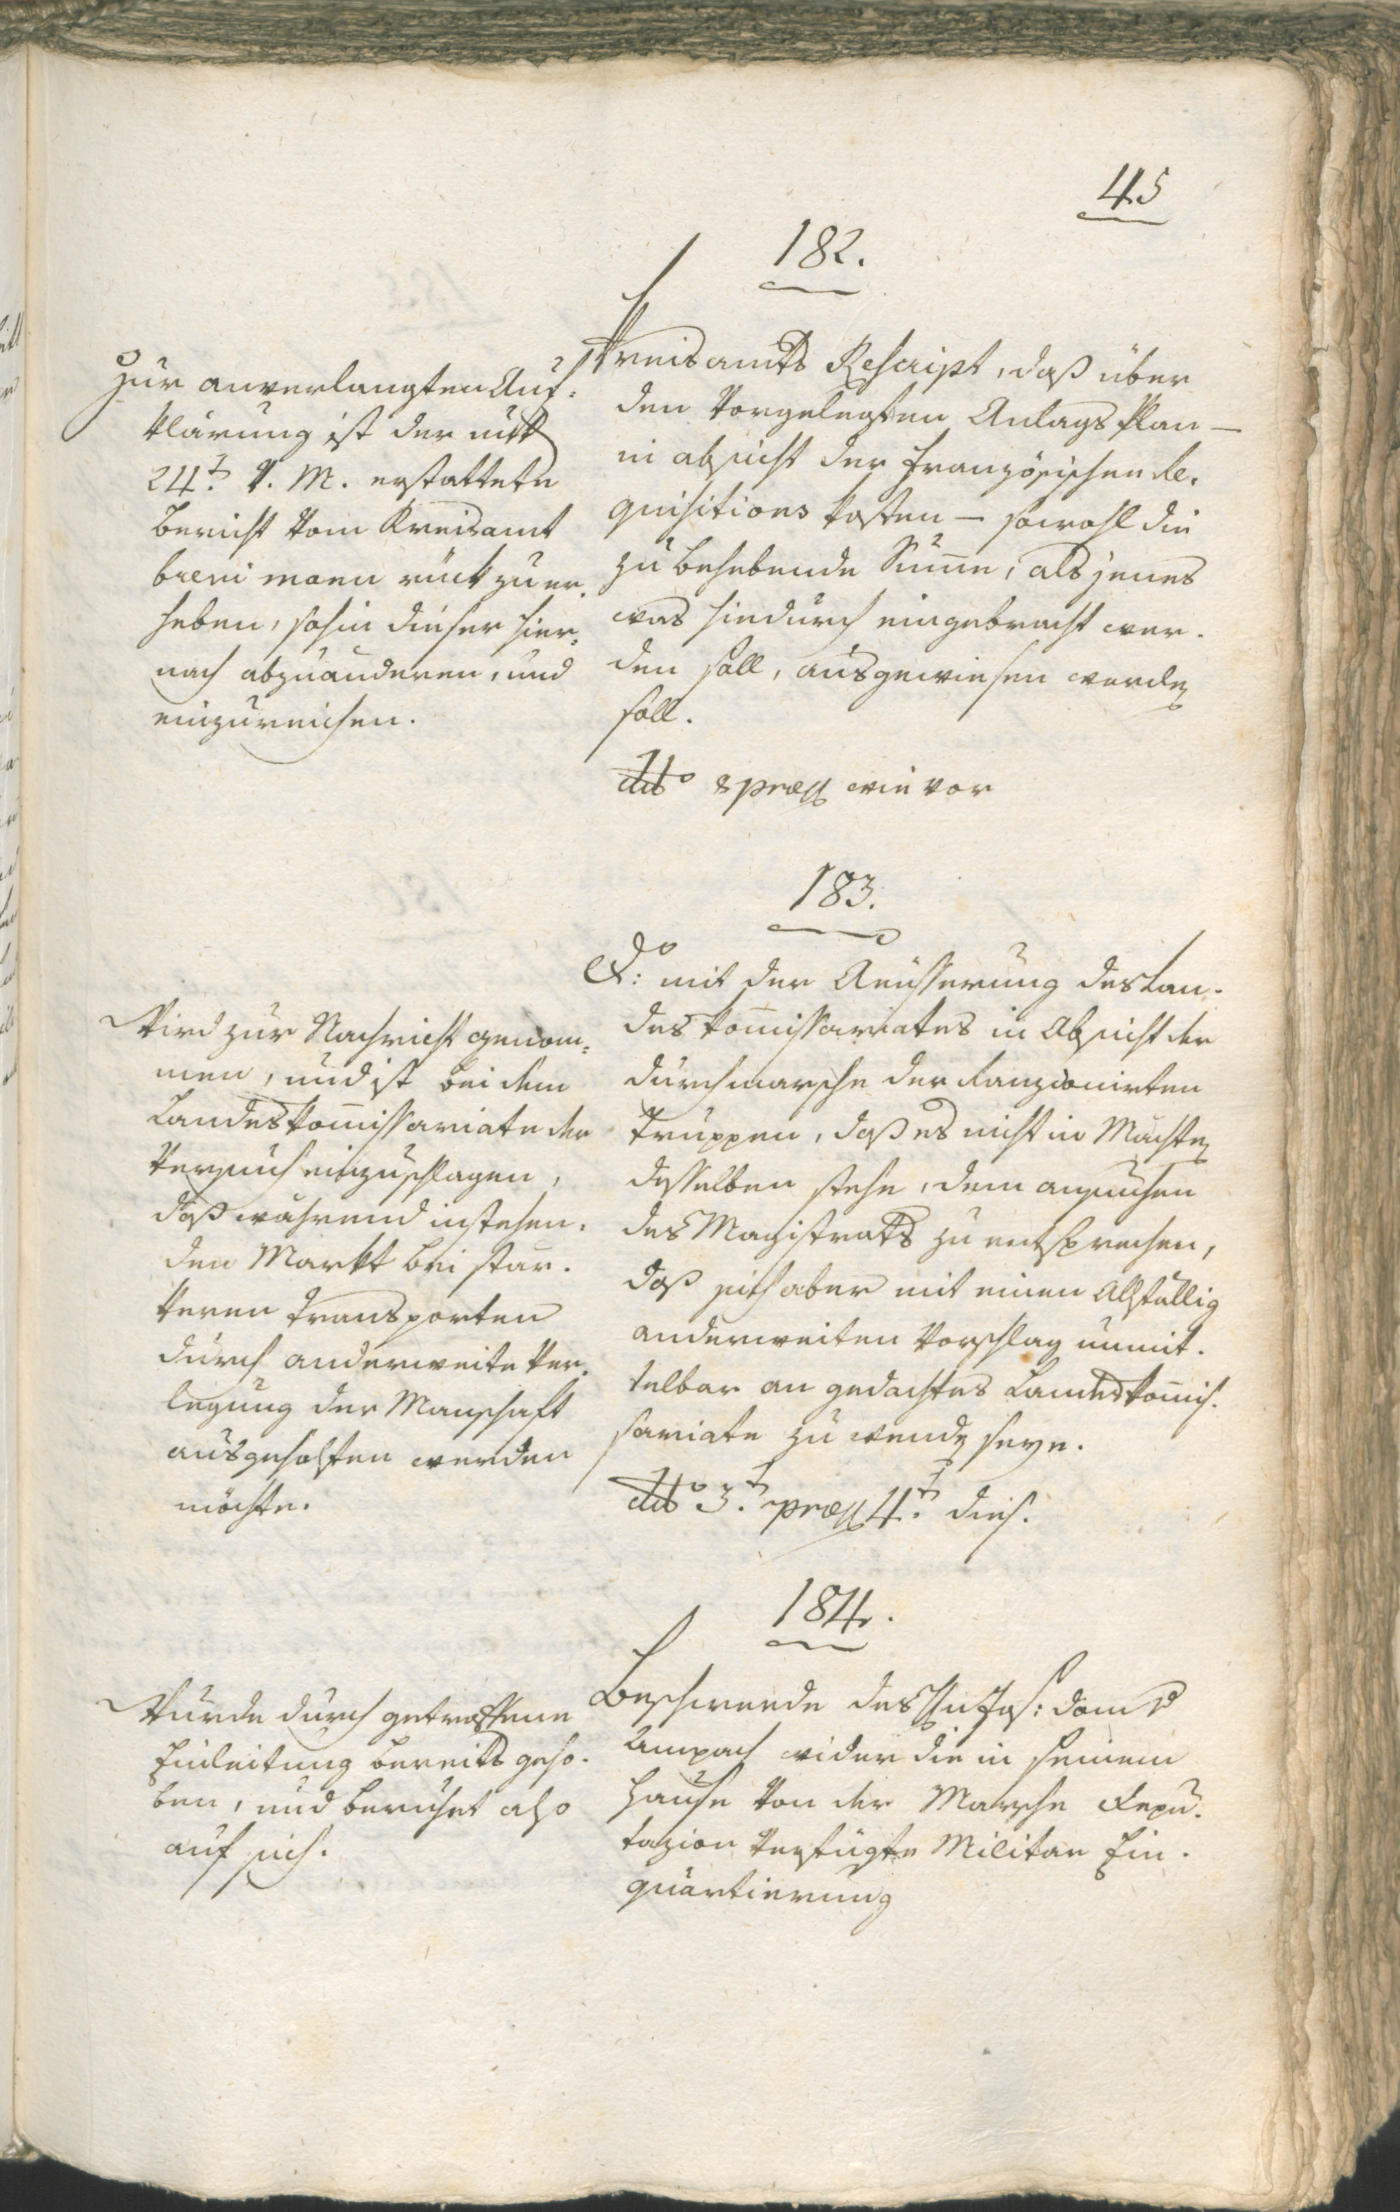 45
182.
Kreisamts Rescript, daß über
den vorgelegten Anlags Plan —
in absicht der französischen Re-
quisitions kosten — sowohl die
zu behebende Summe, als jenes
was hiedurch eingebracht wer-
den soll, ausgewiesen werden
soll.
ddto & præs wie vor
Zur anverlangten Auf-
klärung ist der mit
24t v. M. erstattete
bericht vom Kreisamt
brevi manu rück zu er-
heben, sohin dieser hier-
nach abzuänderen, und
einzureichen.
183.
Do: mit der Aeusserung des Lan-
des komissariates in Absicht der
durchmarsche der ranzionirten
Truppen, daß es nicht in Machten
desselben stehe, dem ansuchen
des Magistrats zu entsprechen,
daß sich aber mit einen Allfällig
anderweiten Vorschlag unmit-
telbar an gedachtes Landeskomis-
sariate zu wenden seye.
ddto 3t præs 4t dies.
Wird zur Nachricht genom-
men, und ist bei dem
Landeskomissariate der
Versuch einzuschlagen,
daß während instehen-
den Markt bei stär-
keren Transporten
durch anderweite Ver-
legung der Manschaft
ausgeholfen werden
möchte.
184.
Beschwerde des Joh: Dom
Anpach wider die in seinem
Hause von der Marsche Depu-
tazion verfügte Militar Ein-
quartierung
Wurde durch getroffene
Einleitung bereits geho-
ben, und beruhet also
auf sich.